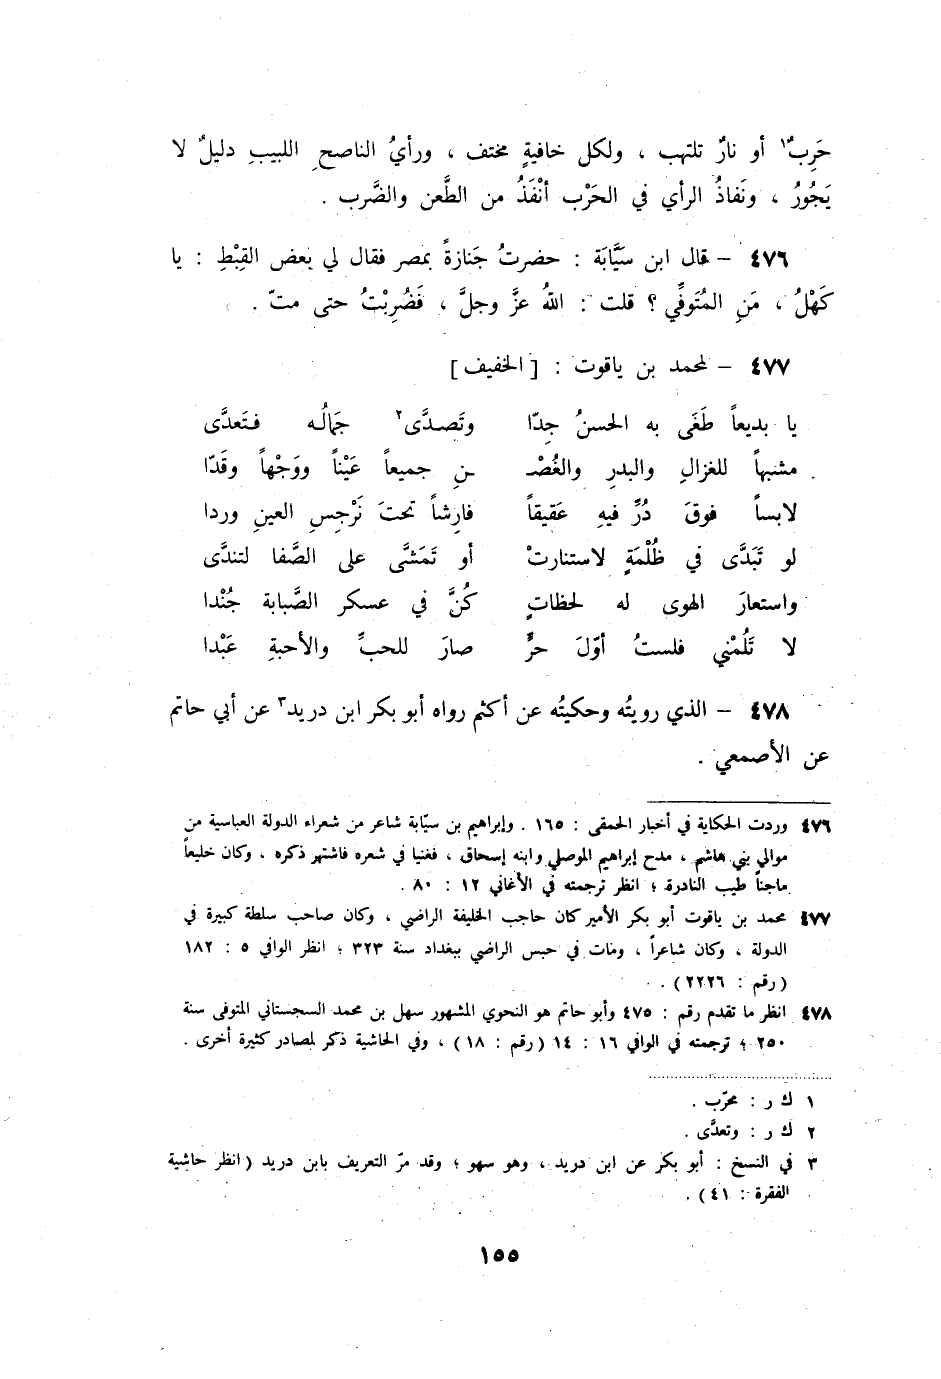 حَرِبٌ١ أو نارٌ تلتهب ، ولكل خافيةٍ مختف ، ورأيُ الناصحِ اللبيبِ دليلٌ لا
يَجُورُ ، ونَفاذُ الرأي في الحَرْب أنْفَذُ من الطَّعن والضَّرب .
٤٧٦ – قال ابن سَيَّابَة : حضرتُ جَنازةً بمصر فقال لي بعض القِبْطِ : يا
كَهْلُ ، مَنِ المُتَوفِّي ؟ قلت : اللهُ عزَّ وجلَّ ، فَضُرِبْتُ حتى متّ .
٤٧٧ – لمحمد بن ياقوت : [الخفيف]
يا بديعاً طَغَى به الحسنُ جِدّا وتَصدَّى٢ جَمالُه فتَعدَّى
مشبهاً للغزالِ والبدرِ والغُصْـ ـنِ جميعاً عَيْناً ووَجْهاً وقَدّا
لابساً فوقَ دُرِّ فيهِ عَقيقاً فارِشاً تحتَ نَرْجِسِ العينِ وردا
لو تَبَدَّى في ظُلْمَةٍ لاستنارتْ أو تَمَشَّى على الصَّفا لتندَّى
واستعارَ الهوى له لحظاتٍ كُنَّ في عسكر الصَّبابة جُنْدا
لا تَلُمْني فلستُ أوّلَ حرٍّ صارَ للحبِّ والأحبةِ عَبْدا
٤٧٨ – الذي رويتُه وحكيتُه عن أكثم رواه أبو بكر ابن دريد٣ عن أبي حاتم
عن الأصمعي .
٤٧٦ وردت الحكاية في أخبار الحمقى : ١٦٥ . وإبراهيم بن سيّابة شاعر من شعراء الدولة العباسية من
موالي بني هاشم ، مدح إبراهيم الموصلي وابنه إسحاق ، فغنيا في شعره فاشتهر ذكره ، وكان خليعاً
ماجناً طيب النادرة ؛ انظر ترجمته في الأغاني ١٢ : ٨٠ .
٤٧٧ محمد بن ياقوت أبو بكر الأمير كان حاجب الخليفة الراضي ، وكان صاحب سلطة كبيرة في
الدولة ، وكان شاعراً ، ومات في حبس الراضي ببغداد سنة ٣٢٣ ؛ انظر الوافي ٥ : ١٨٢
(رقم : ٢٢٢٦) .
٤٧٨ انظر ما تقدم رقم : ٤٧٥ وأبو حاتم هو النحوي المشهور سهل بن محمد السجستاني المتوفى سنة
٢٥٠ ؛ ترجمته في الوافي ١٦ : ١٤ (رقم : ١٨) ، وفي الحاشية ذكر لمصادر كثيرة أخرى .
١ ك ر : محرّب .
٢ ك ر : وتعدَّى .
٣ في النسخ : أبو بكر عن ابن دريد ، وهو سهو ؛ وقد مرّ التعريف بابن دريد (انظر حاشية
الفقرة : ٤١) .
١٥٥